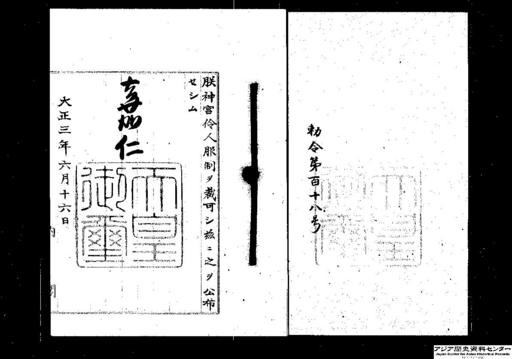 勅令第百十八号
朕神宮伶人服制ヲ裁可シ茲ニ之ヲ公布
セシム
嘉仁
天皇
御璽
大正三年六月十六日
内
閣
アジア歴史資料センター
Japan Center for Asian Historical Records